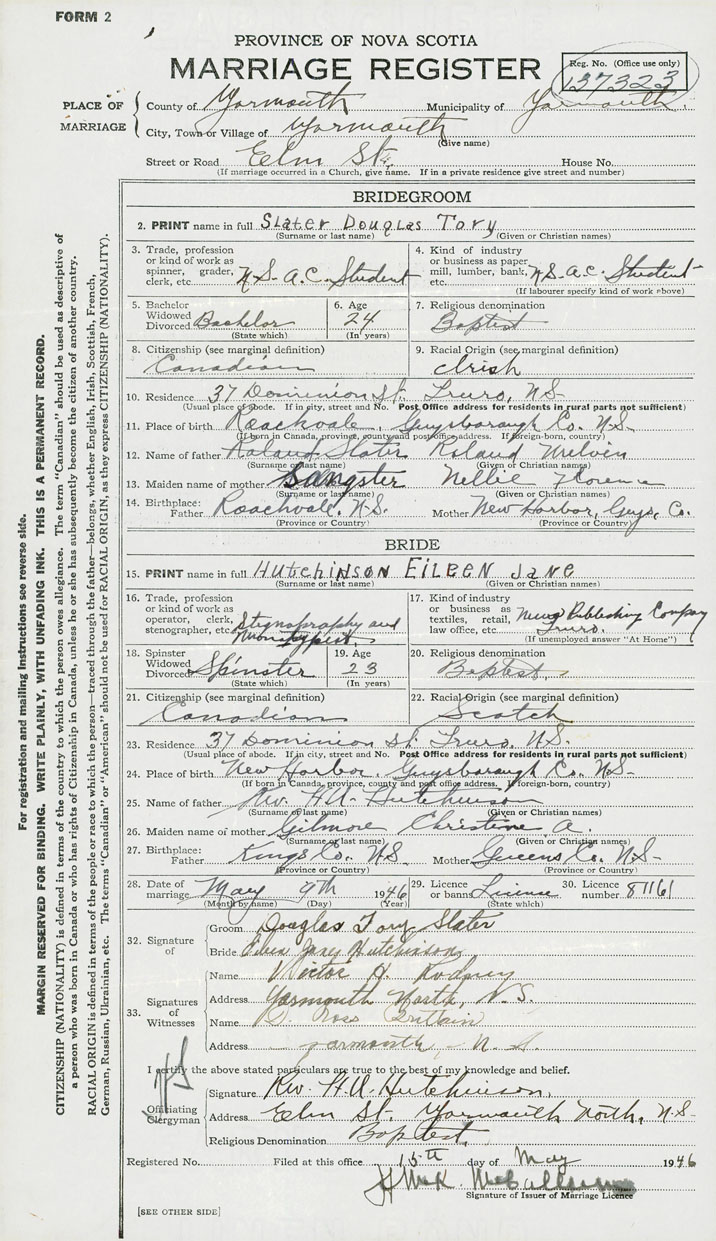 FORM 2
PROVINCE OF NOVA SCOTIA
MARRIAGE REGISTER
Reg. No. (Office use only)
137323
PLACE OF MARRIAGE
County of Yarmouth Municipality of Yarmouth
City, Town or Village of Yarmouth
(Give name)
Street or Road Elm St. House No.
(If marriage occurred in a Church, give name. If in a private residence give street and number)
BRIDEGROOM
2. PRINT name in full Slater Douglas Tory
(Surname or last name) (Given or Christian names)
3. Trade, profession or kind of work as spinner, grader, clerk, etc. N.S.A.C. Student
4. Kind of industry or business as paper mill, lumber, bank, etc. N.S.A.C. Student
(If labourer specify kind of work above)
5. Bachelor Widowed Divorced Bachelor
(State which)
6. Age 24
(In years)
7. Religious denomination
Baptist
8. Citizenship (see marginal definition)
Canadian
9. Racial Origin (see marginal definition)
Irish
10. Residence 37 Dominion St. Truro, N.S.
(Usual place of abode. If in city, street and No. Post Office address for residents in rural parts not sufficient)
11. Place of birth Roachvale, Guysborough Co. N.S.
(If born in Canada, province, county and post office address. If foreign-born, country)
12. Name of father Roland Slater Roland Melvin
(Surname or last name) (Given or Christian names)
13. Maiden name of mother Sangster Nellie Florence
(Surname or last name) (Given or Christian names)
14. Birthplace: Father Roachvale, N.S. Mother New Harbor, Guys. Co.
(Province or Country) (Province or Country)
BRIDE
15. PRINT name in full Hutchinson Eileen Jane
(Surname or last name) (Given or Christian names)
16. Trade, profession or kind of work as operator, clerk, stenographer, etc. Stynography and
17. Kind of industry or business as textiles, retail, law office, etc. News Publishing Company Truro.
(If unemployed answer "At Home")
18. Spinster Widowed Divorced Spinster
(State which)
19. Age 23
(In years)
20. Religious denomination
Baptist
21. Citizenship (see marginal definition)
Canadian
22. Racial Origin (see marginal definition)
Scotch
23. Residence 37 Dominion St. Truro, N.S.
(Usual place of abode. If in city, street and No. Post Office address for residents in rural parts not sufficient)
24. Place of birth New Harbor, Guysborough Co. N.S.
(If born in Canada, province, county and post office address. If foreign-born, country)
25. Name of father Rev. H.A. Hutchinson
(Surname or last name) (Given or Christian names)
26. Maiden name of mother Gilmore Christine A.
(Surname or last name) (Given or Christian names)
27. Birthplace: Father Kings Co. N.S. Mother Queens Co. N.S.
(Province or Country) (Province or Country)
28. Date of marriage May 9th 1946
(Month by name) (Day) (Year)
29. Licence or banns License
(State which)
30. Licence number 87161
32. Signature of
Groom Douglas Tory Slater
Bride Eileen Janey Hutchinson
33. Signatures of Witnesses
Name Victor H.
Address Yarmouth North, N.S.
Name Ross Brittain
Address Yarmouth, N.S.
I certify the above stated particulars are true to the best of my knowledge and belief.
Officiating Clergyman
Signature Rev. H.A. Hutchinson.
Address Elm St. Yarmouth North, N.S.
Religious Denomination Baptist.
Registered No. Filed at this office 15th day of May 1946
Signature of Issuer of Marriage Licence
[SEE OTHER SIDE]
For registration and mailing instructions see reverse side.
MARGIN RESERVED FOR BINDING. WRITE PLAINLY, WITH UNFADING INK. THIS IS A PERMANENT RECORD.
CITIZENSHIP (NATIONALITY) is defined in terms of the country to which the person owes allegiance. The term "Canadian" should be used as descriptive of
a person who was born in Canada or who has rights of Citizenship in Canada, unless he or she has subsequently become the citizen of another country.
RACIAL ORIGIN is defined in terms of the people or race to which the person—traced through the father—belongs, whether English, Irish, Scottish, French,
German, Russian, Ukrainian, etc. The terms "Canadian" or "American" should not be used for RACIAL ORIGIN, as they express CITIZENSHIP (NATIONALITY).